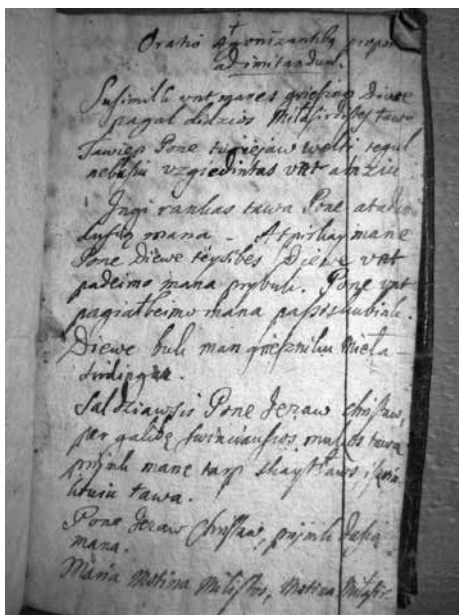 Oratio Agonizantibq propon
ad imitandum.
Susimilk vnt manes grieszno Diewe
pagal didzios Milasirdistes tawo
Tawiep Pone turiejaw welti tegul
nebusiu vzgiedintas vnt amziu
Ingi rankas tawa Pone atadumi
dusią mana. Atpirkay mane
Pone Diewe teysibes Diewe vnt
padeimo mana prybuk. Pone vnt
pagialbeimo mana passiskubink.
Diewe buk man griesznikuy mieła-
sirdinga.
Saldziawsis Pone Jezaw Christaw,
per galibę swinciausios mukos tawa
prijmk mane tarp skaytlaws iszrin-
ktuiu tawa.
Pone Jezaw Christaw, prijmk dusią
mana.
Maria Motina Milistos, Motina Milasir-